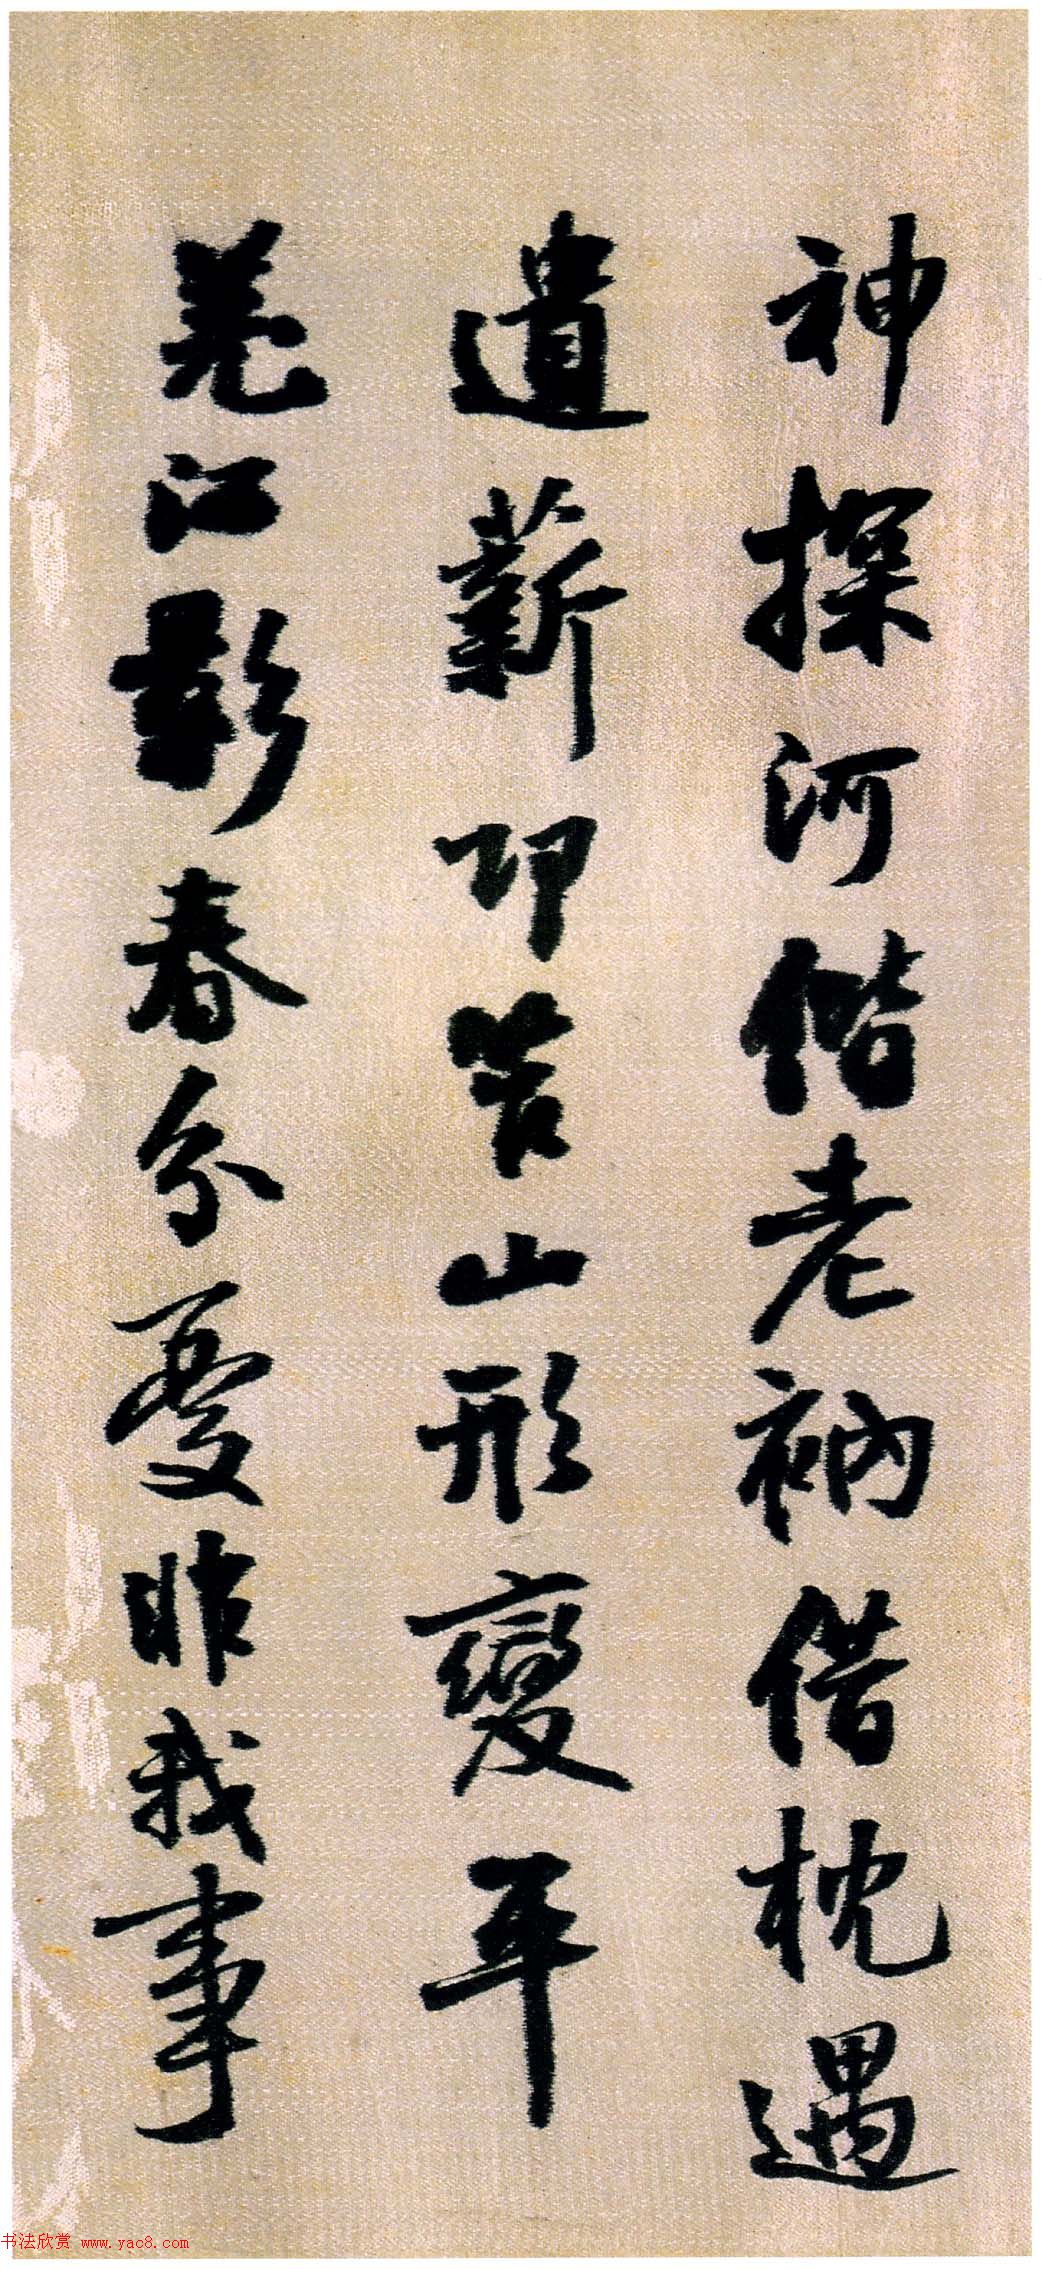 神探河偕老衲借枕遇
遺薪印苔山形變年
羌江影春分憂非我事
书法欣赏 www.yac8.com